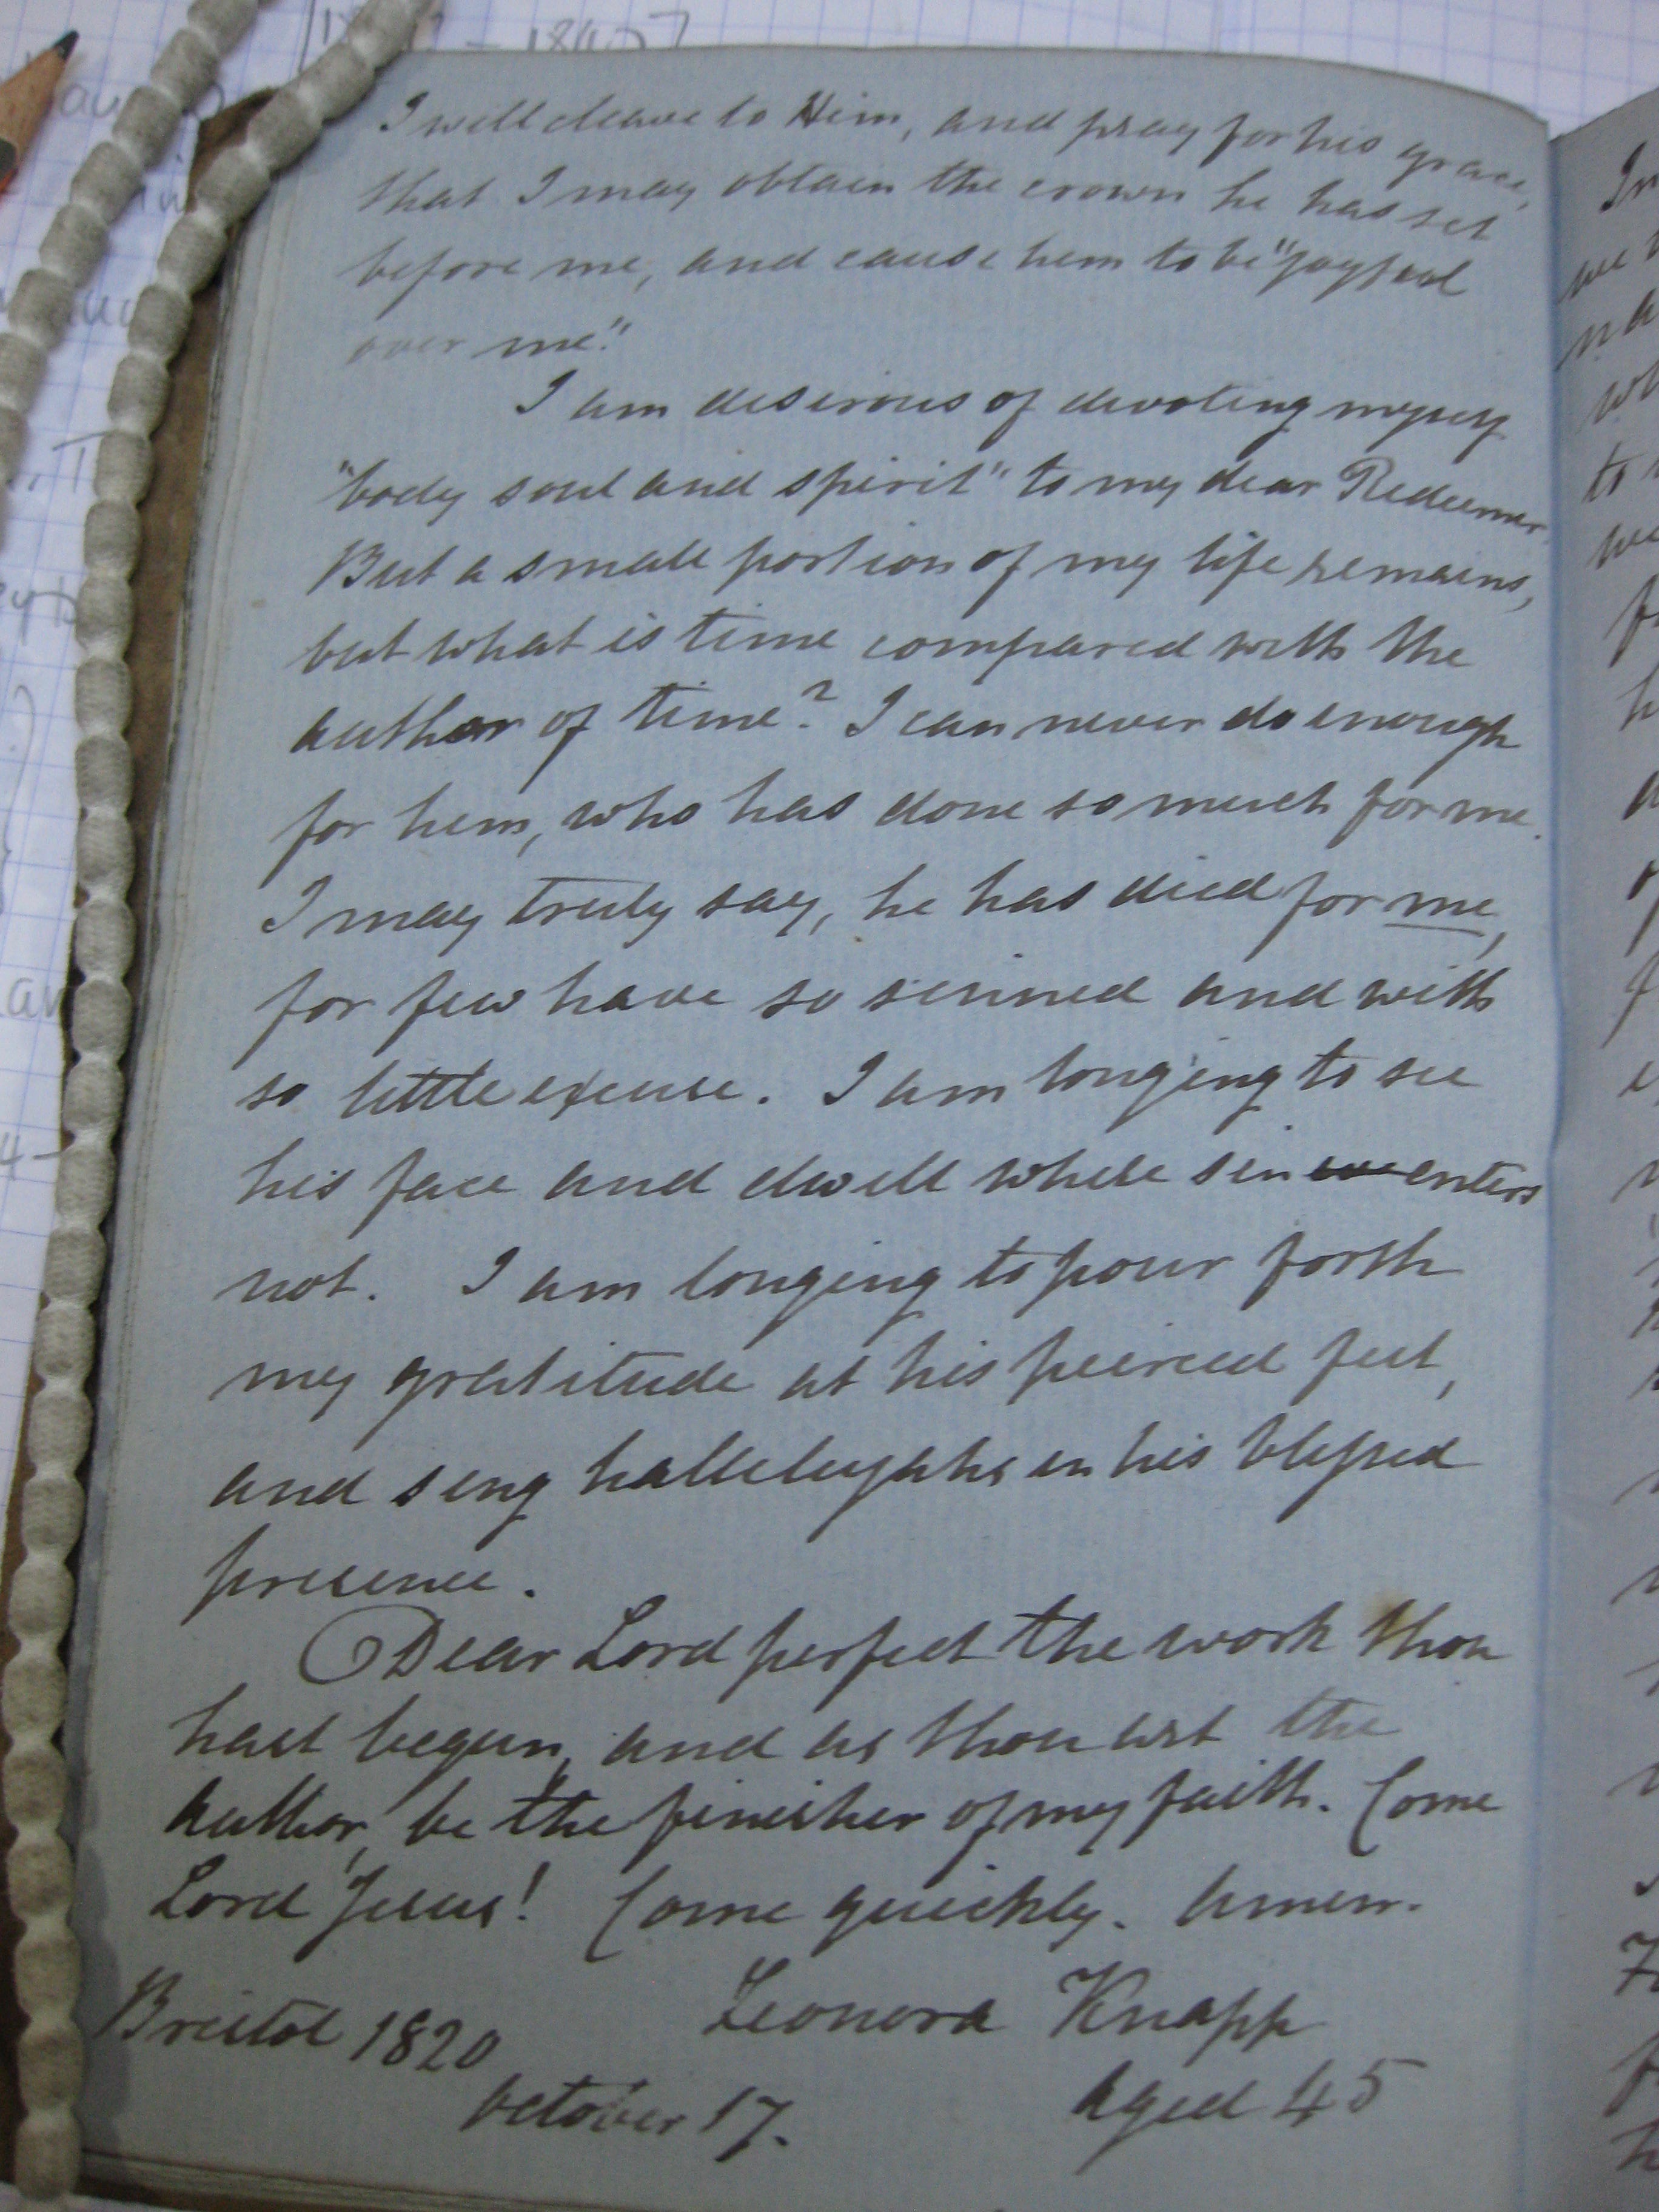 I will cleave to Him, and pray for his grace,
that I may obtain the crown he has set
before me, and cause him to be "joyful
over me."
I am desirous of devoting myself
"body soul and spirit" to my dear Redeemer.
But a small portion of my life remains,
but what is time compared with the
author of time? I can never do enough
for him, who has done so much for me.
I may truly say, he has died for me,
for few have so sinned and with
so little excuse. I am longing to see
his face and dwell where sin enters
not. I am longing to pour forth
my gratitude at his peirced feet,
and sing hallelujahs in his blessed
presence.
Dear Lord perfect the work thou
hast begun, and as thou art the
author, be the finisher of my faith. Come
Lord Jesus! Come quickly. Amen.
Bristol 1820 Leonora Knapp
October 17. Aged 45